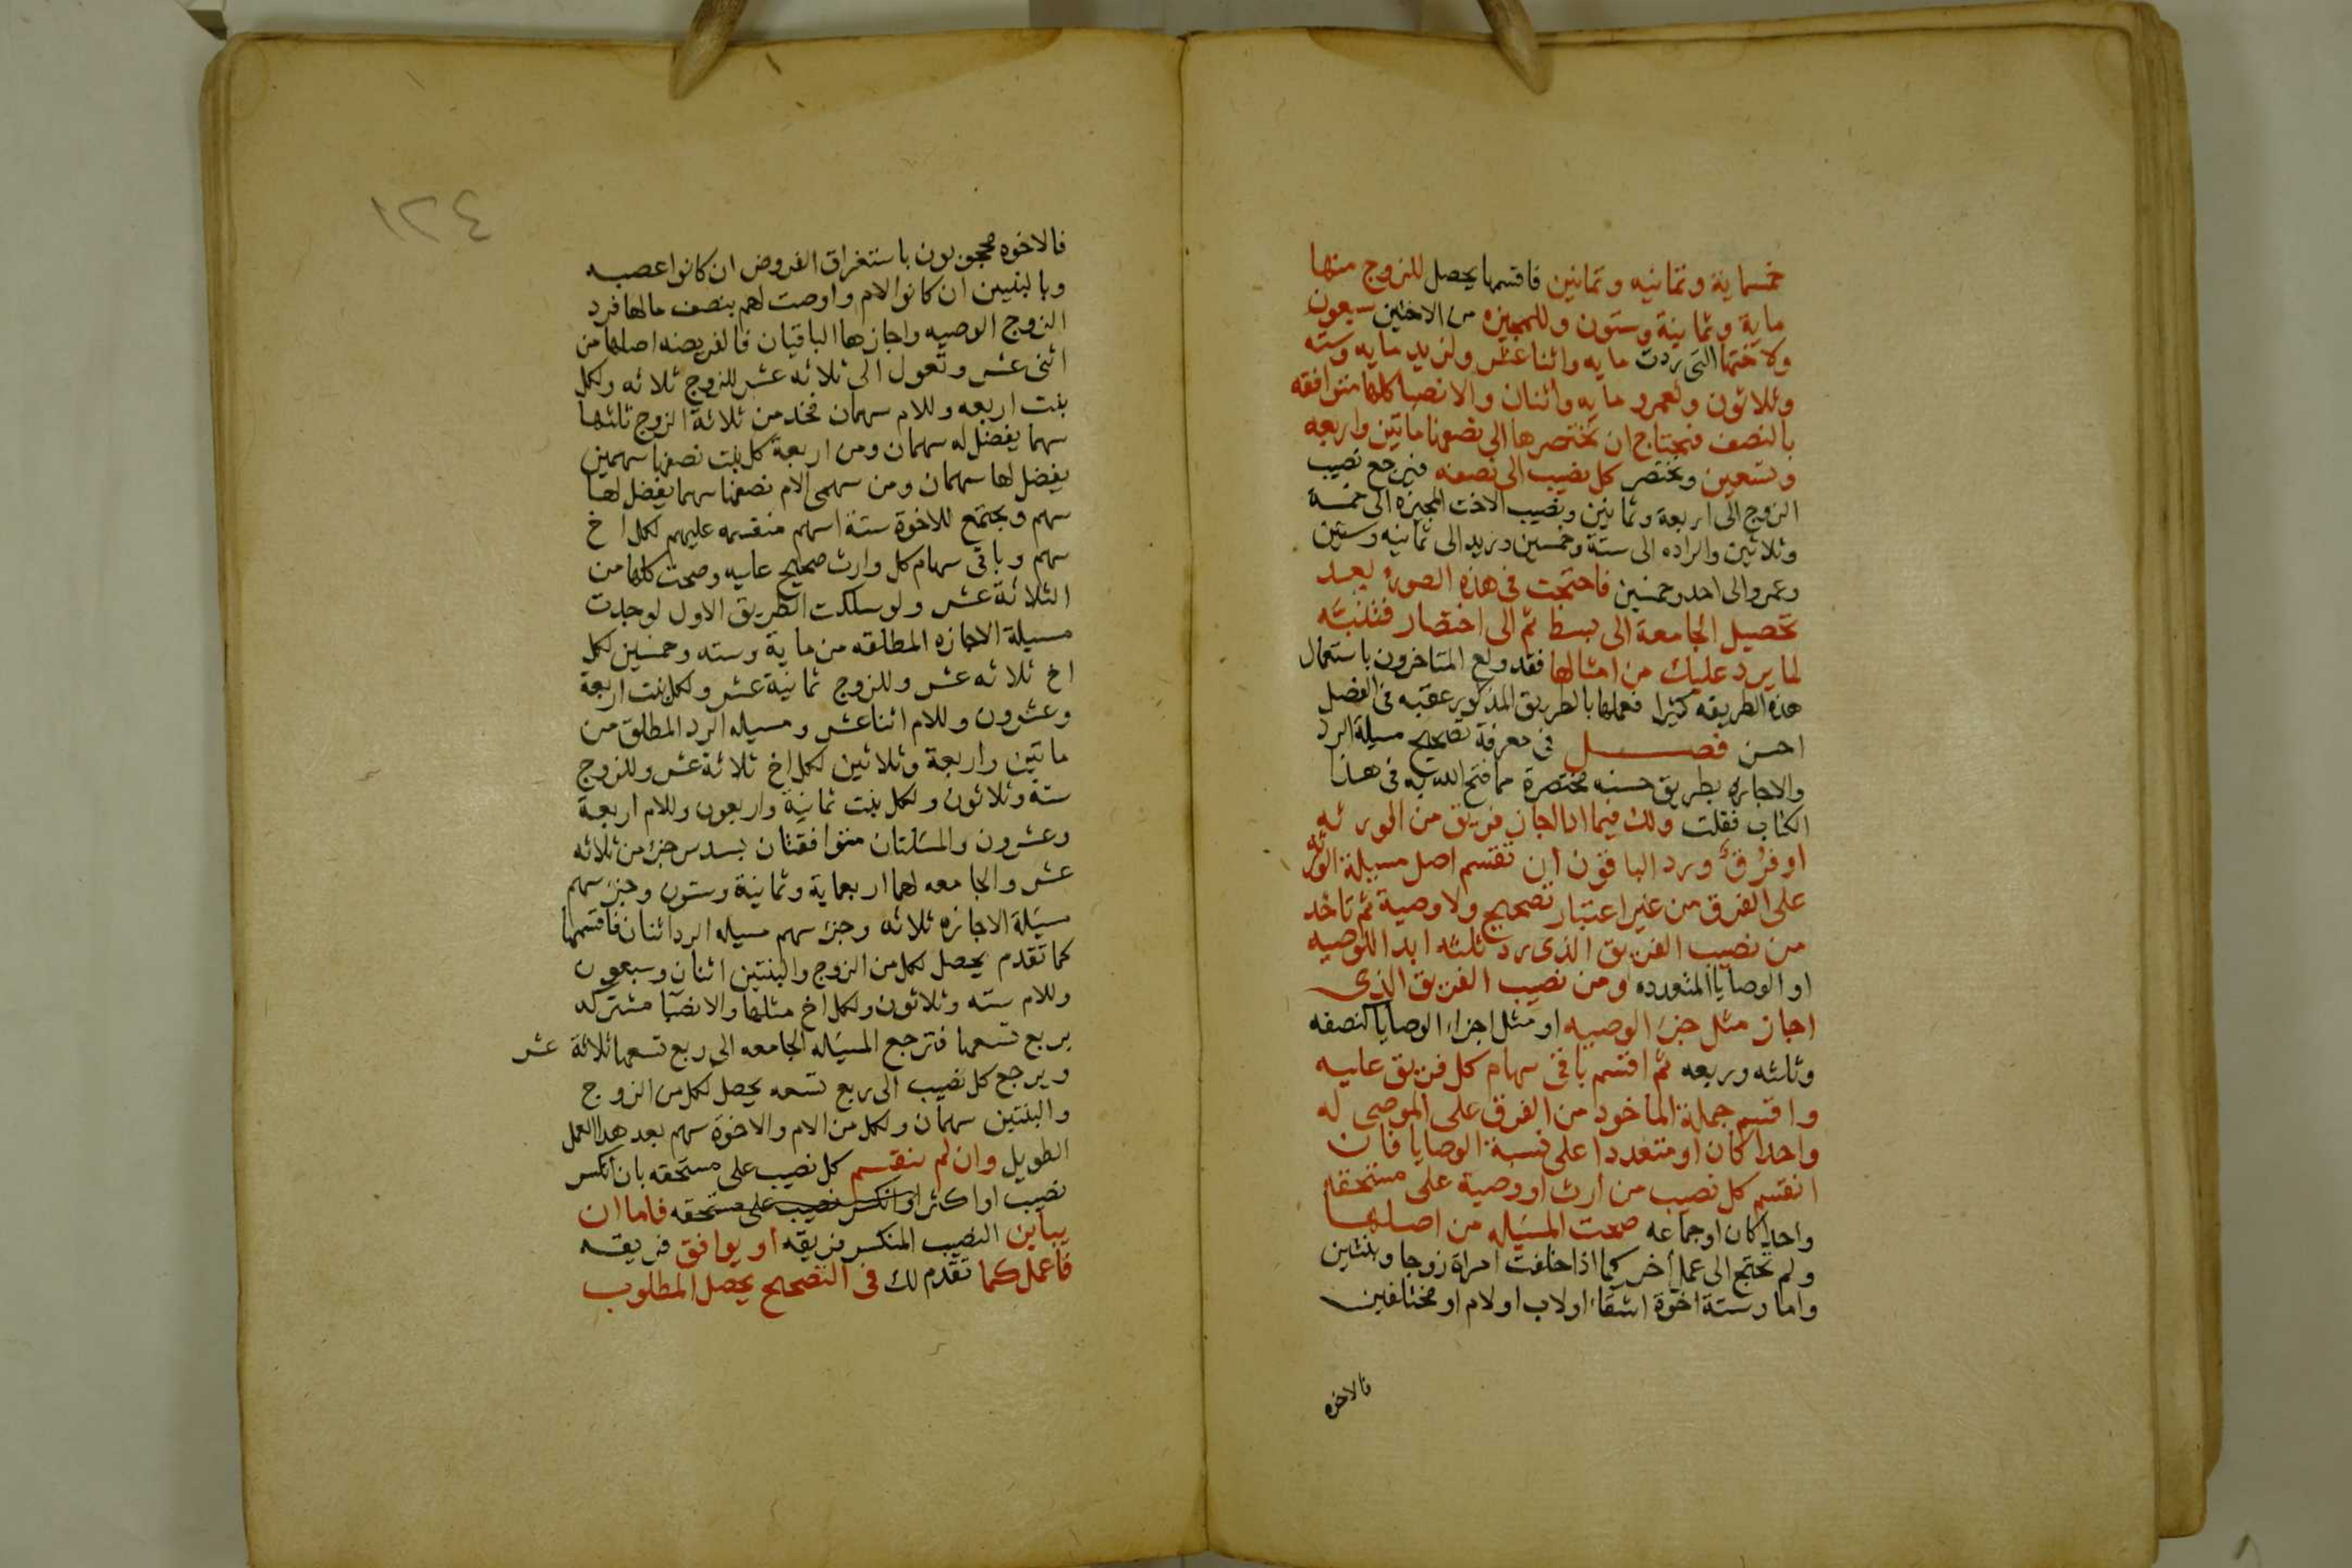 خمسماية وثمانيه وثمانين فاقسمها يحصل للزوج منها
ماية وثمانية وستون وللمجيزه من الاختين سبعون
ولاختها التى ردت مايه واثنا عشر ولزيد مايه وسته
وثلاثون ولعمرو مايه واثنان والانصبا كلها متوافقه
بالنصف فتحتاج ان تختصرها الى نصفها ماتين واربعه
وتسعين وتختصر كل نصيب الى نصفه فيرجع نصيب
الزوج الى اربعة وثمانين ونصيب الاخت المجيزه الى خمسة
وثلاثين والراده الى ستة وخمسين وزيد الى ثمانيه وستين
وعمرو الى احد وخمسين فاحتجت فى هذه الصورة بعد
تحصيل الجامعة الى بسط ثم الى اختصار فتنبه
لما يرد عليك من امثالها فقد ولع المتاخرون باستعمال
هذه الطريقه كثيرا فعملها بالطريق المذكور عقبه فى الفصل
احسن فصل فى معرفة تصحيح مسيلة الرد
والاجازه بطريق حسنه مختصرة مما فتح الله به فى هذا
الكتاب فقلت ولك فيما اذا اجاز فريق من الورثه
او فرق ورد الباقون ان تقسم اصل مسيلة الورثه
على الفرق من غير اعتبار تصحيح ولا وصية ثم تاخد
من نصيب الفريق الذى رد ثلثه ابدا للوصيه
او الوصايا المتعدده ومن نصيب الفريق الذى
اجاز مثل جزء الوصيه او مثل اجزاء الوصايا كنصفه
وثلثه وربعه ثم اقسم باقى سهام كل فريق عليه
واقسم جملة الماخود من الفرق على الموصى له
واحدا كان او متعددا على نسبة الوصايا فان
انقسم كل نصيب من ارث او وصية على مستحقه
واحدا كان او جماعه صحت المسيله من اصلها
ولم تحتج الى عمل أخر كما اذا خلفت امراة زوجا وبنتين
واما وستة اخوة اشقاء او لاب او لام او مختلفين
فالاخوه
١٢٤
فالاخوه محجوبون باستغراق الفروض ان كانوا عصبه
وبالبنتين ان كانوا لام واوصت لهم بنصف مالها فرد
الزوج الوصيه واجازها الباقيان فالفريضه اصلها من
اثنى عشر وتعول الى ثلاثه عشر للزوج ثلاثه ولكل
بنت اربعه وللام سهمان فخد من ثلاثة الزوج ثلثها
سهما يفضل له سهمان ومن اربعة كل بنت نصفها سهمين
يفضل لها سهمان ومن سهمى الام نصفها سهما يفضل لها
سهم ويجتمع للاخوة ستة اسهم منقسمه عليهم لكل اخ
سهم وباقى سهام كل وارث صحيح عليه وصحت كلها من
الثلاثة عشر ولو سلكت الطريق الاول لوجدت
مسيلة الاجازه المطلقه من ماية وسته وخمسين لكل
اخ ثلاثه عشر وللزوج ثمانية عشر ولكل بنت اربعة
وعشرون وللام اثنا عشر ومسيله الرد المطلق من
ماتين واربعة وثلاثين لكل اخ ثلاثة عشر وللزوج
ستة وثلاثون ولكل بنت ثمانية واربعون وللام اربعة
وعشرون والمسلتان متوافقتان بسدس جزء من ثلاثه
عشر والجامعه لهما اربعماية وثمانية وستون وجزء سهم
مسيلة الاجازه ثلاثه وجزء سهم مسيله الرد اثنان فاقسمها
كما تقدم يحصل لكل من الزوج والبنتين اثنان وسبعون
وللام سته وثلاثون ولكل اخ مثلها والانصبا مشتركه
بربع تسعها فترجع المسيله الجامعه الى ربع تسعها ثلاثة عشر
ويرجع كل نصيب الى ربع تسعه يحصل لكل من الزوج
والبنتين سهمان ولكل من الام والاخوة سهم بعد هدا العمل
الطويل وان لم ينقسم كل نصيب على مستحقه بان انكسر
نصيب او اكثر او انكسر نصيب على مستحقه فاما ان
يباين النصيب المنكسر فريقه او يوافق فريقه
فاعمل كما تقدم لك فى التصحيح يحصل المطلوب